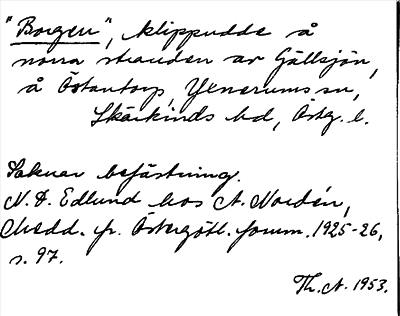 "Borgen", klippudde å
norra stranden av Gällsjön,
å Östantorp, Yxnerums sn,
Skärkinds hd, Östg. l.
Saknar befästning.
N. D. Edlund hos A. Nordén,
Medd. fr. Östergötl. fornm. 1925-26,
s. 97.
Th. A. 1953.